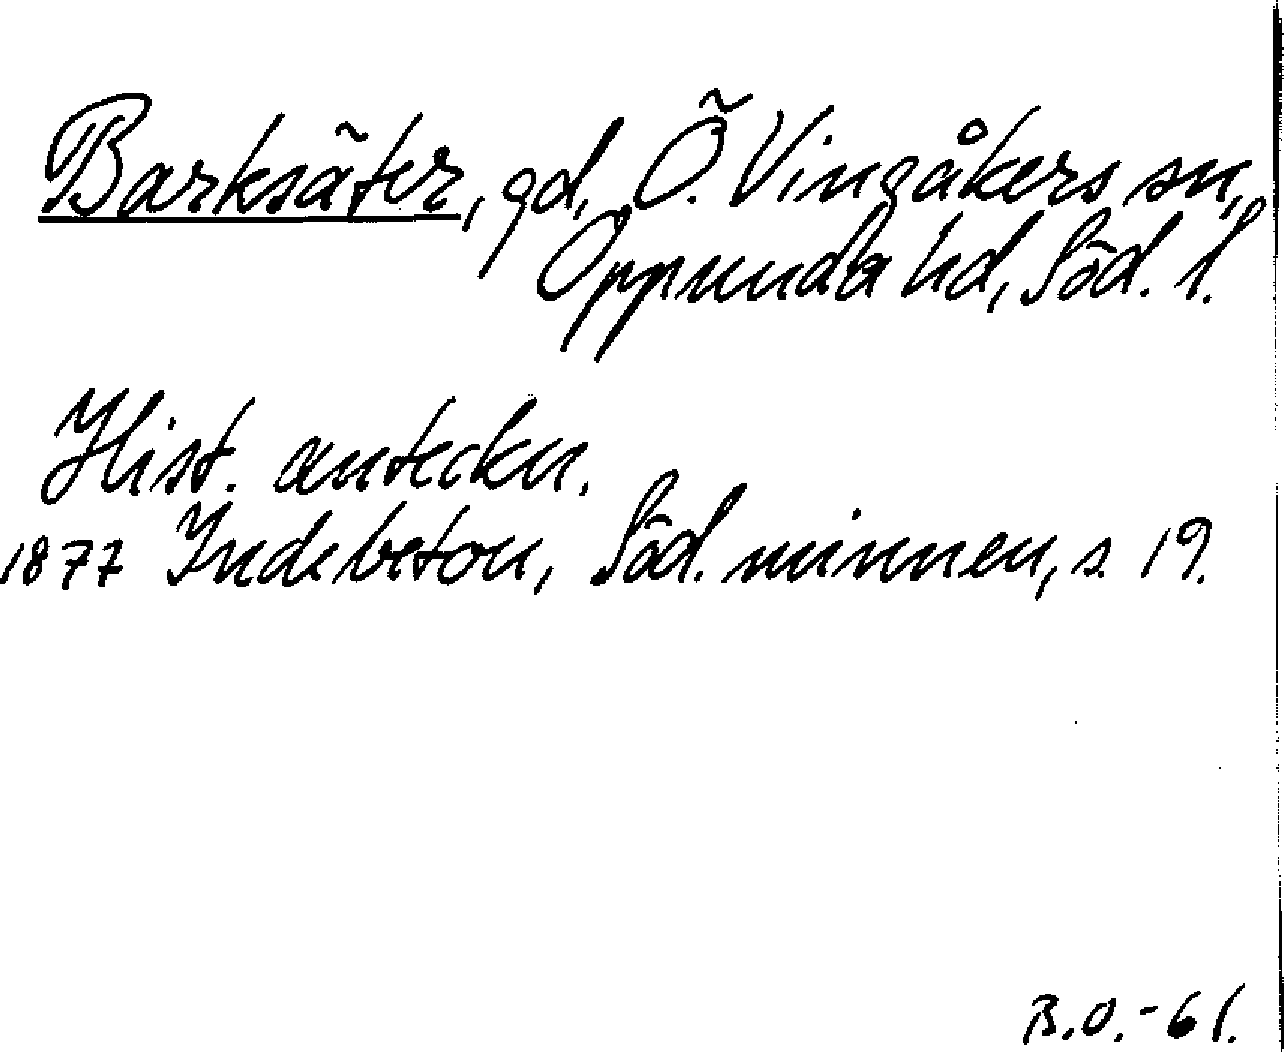 Barksäter, gd, Ö. Vingåkers sn,
Oppunda hd, Söd. l.
Hist. anteckn.
1877 Indebetou, Söd. minnen, s. 19.
B.O.-61.